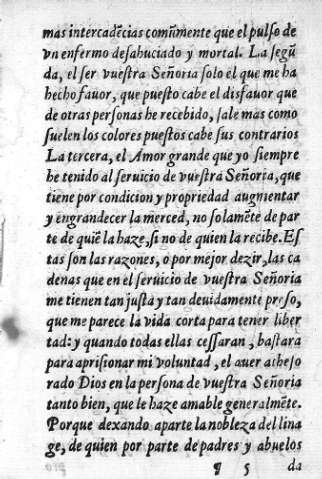 mas intercadẽcias comũmente que el pulſo de
vn enfermo deſahuciado y mortal. La ſegũ
da, el ſer vueſtra Señoria ſolo el que me ha
hecho fauor, que pueſto cabe el disfauor que
de otras perſonas he recebido, ſale mas como
ſuelen los colores pueſtos cabe ſus contrarios
La tercera, el Amor grande que yo ſiempre
he tenido al ſeruicio de vueſtra Señoria, que
tiene por condicion y propriedad augmentar
y engrandecer la merced, no ſolamẽte de par
te de quiẽ la haze, ſi no de quien la recibe. Eſ
tas ſon las razones, o por mejor dezir, las ca
denas que en el ſeruicio de vueſtra Señoria
me tienen tan juſta y tan deuidamente preſo,
que me parece la vida corta para tener liber
tad: y quando todas ellas ceſſaran, baſtara
para apriſionar mi voluntad, el auer atheſo
rado Dios en la perſona de vueſtra Señoria
tanto bien, que le haze amable generalmẽte.
Porque dexando aparte la nobleza del lina
ge, de quien por parte de padres y abuelos
¶ 5 da